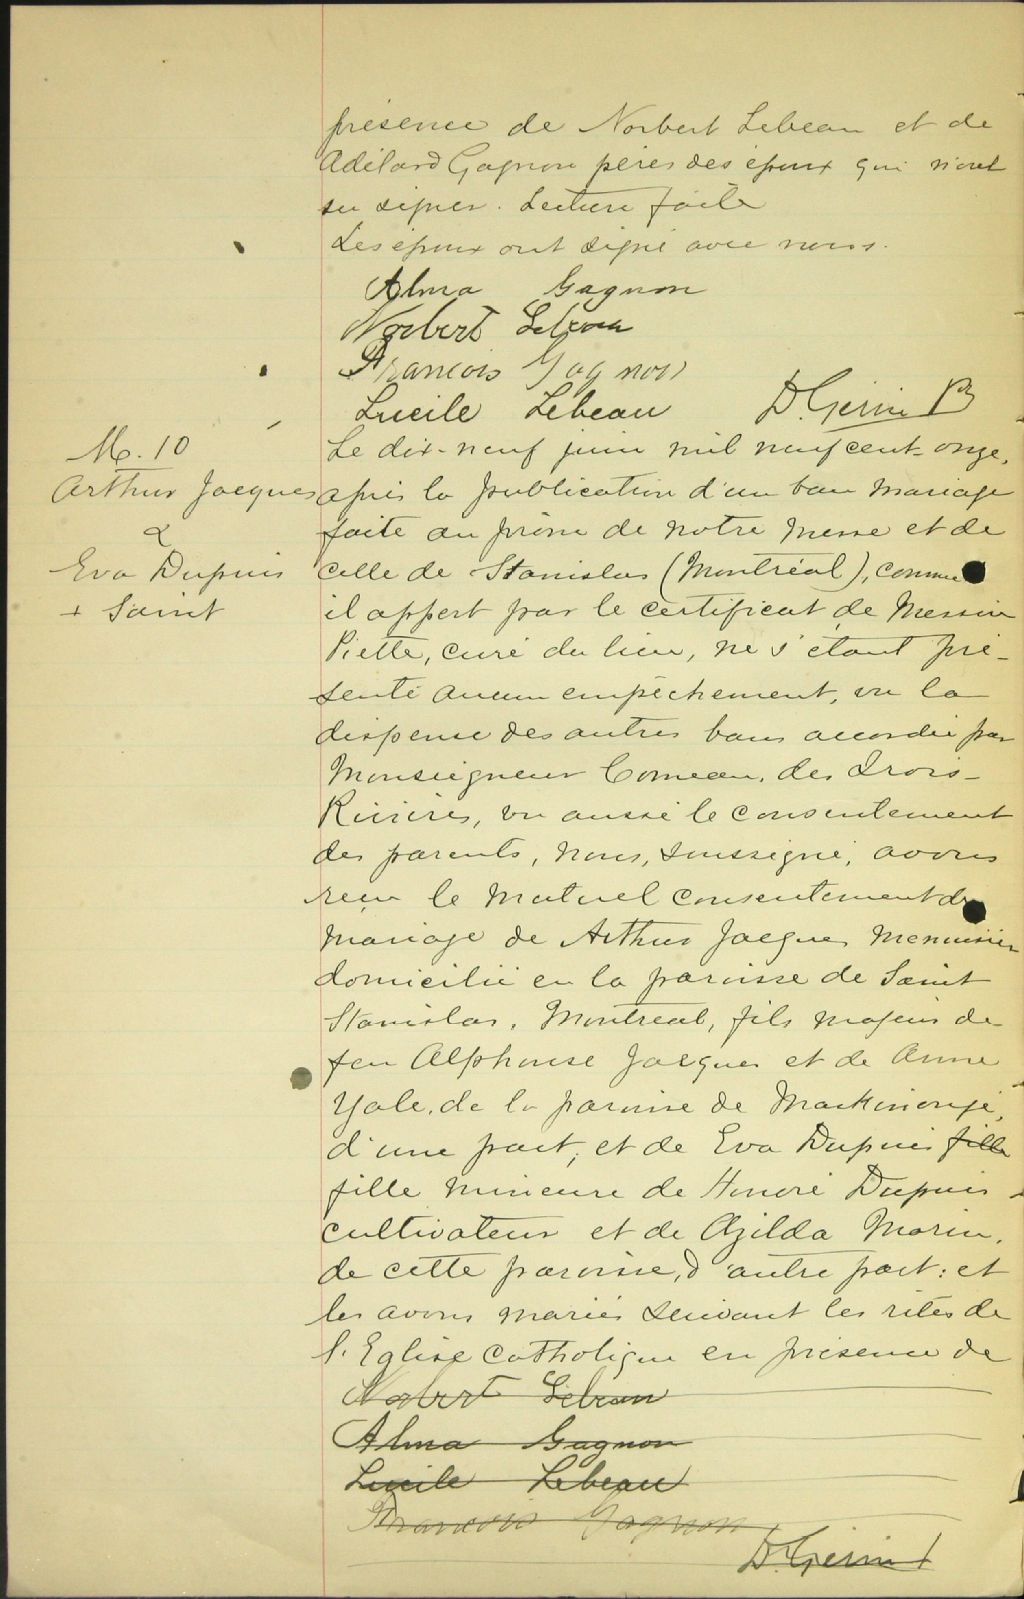 présence de Norbert Lebeau et de
Adélard Gagnon pères des époux qui n'ont
su signer. Lecture faite
Les époux ont signé avec nous.
Alma Gagnon
Norbert Lebeau
Francois Gagnon
Lucile Lebeau D. Gerin
M. 10
Arthur Jacques
&
Eva Dupuis
+ Saint
Le dix-neuf juin mil neuf cent-onze,
après la publication d'un ban mariage
faite au prône de notre Messe et de
celle de Stanislas (Montréal), comme
il appert par le certificat de Messire
Piette, curé du lieu, ne s'étant pré-
senté aucun empêchement, vu la
dispense des autres bans accordée par
Monseigneur Comeau, des Trois-
Rivières, vu aussi le consentement
des parents, nous, soussigné, avons
reçu le mutuel consentement de
mariage de Arthur Jacques menuisier
domicilié en la paroisse de Saint
Stanislas, Montréal, fils majeur de
feu Alphonse Jacques et de Anne
Yale, de la paroisse de Maskinongé,
d'une part, et de Eva Dupuis fille
fille mineure de Honoré Dupuis
cultivateur et de Azilda Morin,
de cette paroisse, d'autre part: et
les avons mariés suivant les rites de
l'Eglise catholique en présence de
Norbert Lebeau
Alma Gagnon
Lucile Lebeau
Francois Gagnon
D. Gerin